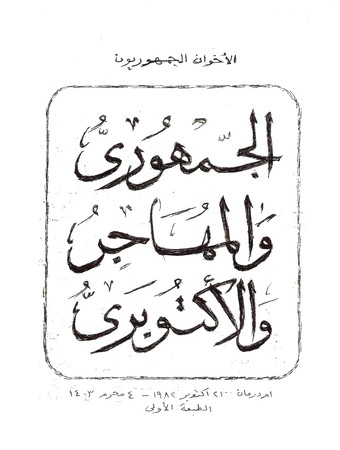 الأخوان الجمهوريون
الجمهوري
والمهاجر
والأكتوبري
امدرمان ٢١٠٠ اكتوبر ١٩٨٢ - ٤ محرم ١٤٠٣
الطبعة الأولى